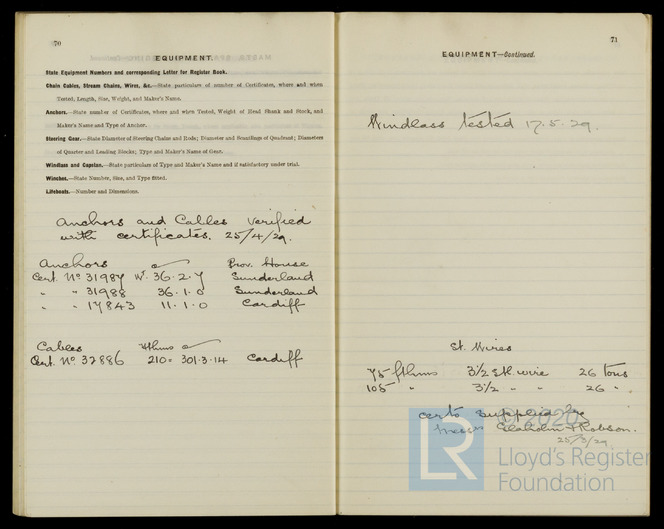 70
EQUIPMENT.
State Equipment Numbers and corresponding Letter for Register Book.
Chain Cables, Stream Chains, Wires, &c.—State particulars of number of Certificates, where and when
Tested, Length, Size, Weight, and Maker's Name.
Anchors.—State number of Certificates, where and when Tested, Weight of Head Shank and Stock, and
Maker's Name and Type of Anchor.
Steering Gear.—State Diameter of Steering Chains and Rods; Diameter and Scantlings of Quadrant; Diameters
of Quarter and Leading Blocks; Type and Maker's Name of Gear.
Windlass and Capstan.—State particulars of Type and Maker's Name and if satisfactory under trial.
Winches.—State Number, Size, and Type fitted.
Lifeboats.—Number and Dimensions.
Anchors and Cables verified
with certificates. 25/4/29.
Anchors Prov. House
Cert. No 31987 Wt. 36.2.7 Sunderland
" " 31988 36.1.0 Sunderland
" " 17843 11.1.0 Cardiff
Cables
Cert. No 32886 210= 301.3.14 Cardiff
71
EQUIPMENT—Continued.
Windlass tested 17.5.29.
St. Wires
75 fthms 3½ wire 26 tons
105 " 3½ " " 26 "
certs supplied by
Messrs Glaholm & Robson.
25/3/29
© 2020
LR
Lloyd's Register
Foundation